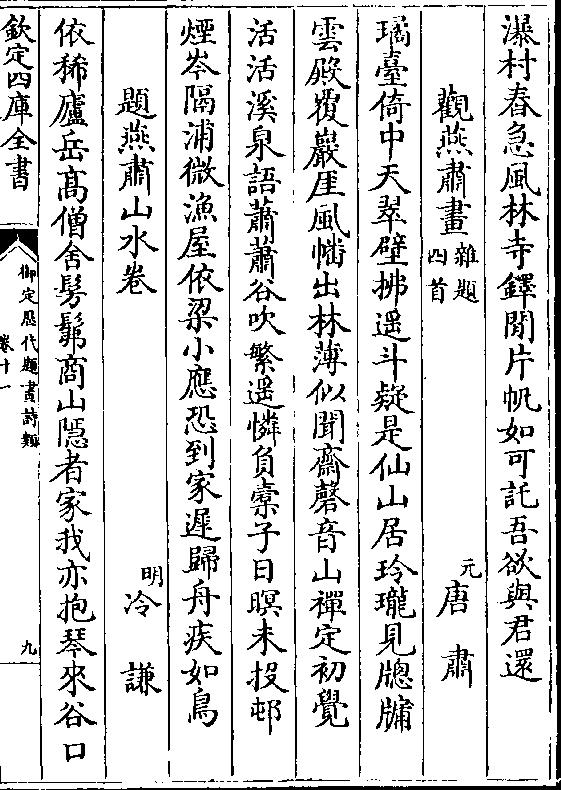 瀑村舂急風林寺鐸聞片帆如可託吾欲與君還
觀燕肅畫雜題四首 元唐肅
璚臺倚中天翠壁拂遥斗疑是仙山居玲瓏見牎牖
雲殿覆巖厓風幡出林薄似聞齋磬音山禪定初覺
活活溪泉語蕭蕭谷吹繁遥憐負橐子日暝未投邨
煙岑隔浦微漁屋依梁小應恐到家遲歸舟疾如鳥
題燕肅山水卷 明冷謙
依稀廬岳髙僧舍髣髴商山隠者家我亦抱琴來谷口
欽定四庫全書
御定歴代題畫詩類
卷十一
九